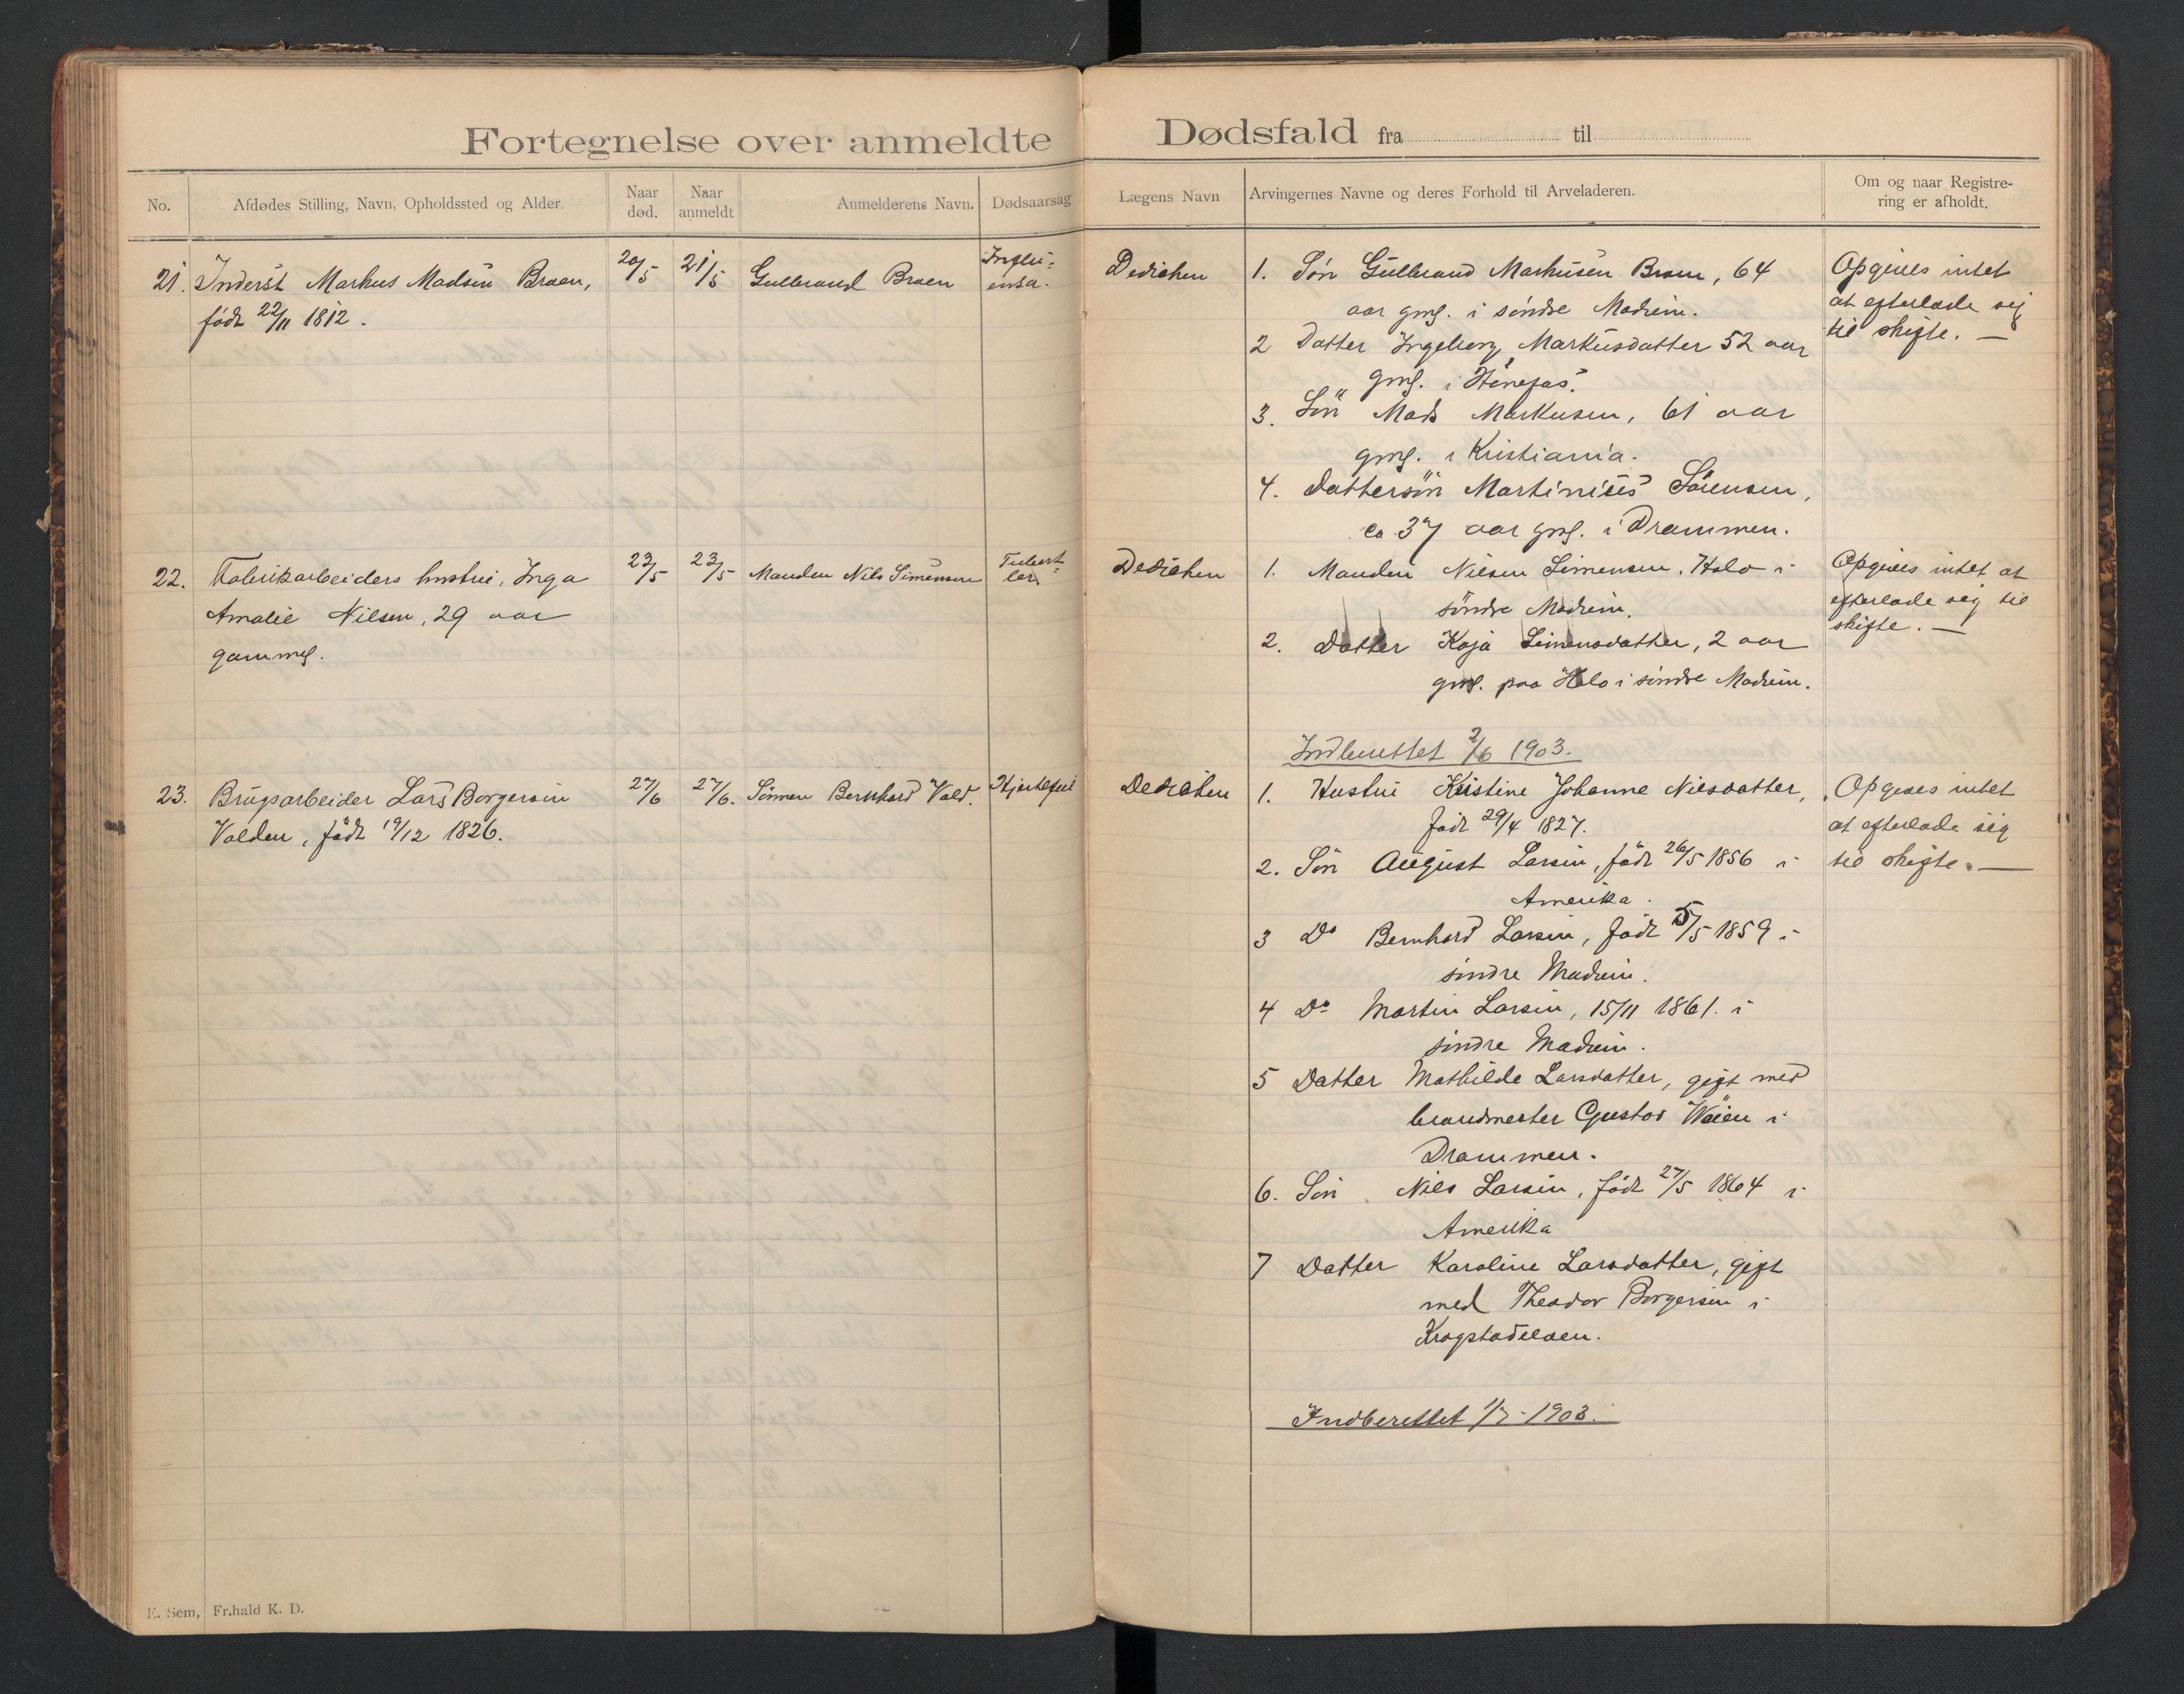 Fortegnelse over anmeldte Dødsfald fra til
No. Afdødes Stilling, Navn, Opholdssted og Alder. Naar død. Naar anmeldt Anmelderens Navn. Dødsaarsag Lægens Navn Arvingernes Navne og deres Forhold til Arveladeren. Om og naar Registrering er afholdt.
21. Inderst Markus Madsen Braaen,
født 22/11 1812.
20/5 21/5 Gulbrand Braaen
Influ-
ensa.
Dedichen
1. Søn Gulbrand Markusen Braaen, 64
aar gml. i søndre Modum.
2 Datter Ingeborg Markusdatter 52 aar
gml. i Hønefos.
3. Søn Mads Markusen, 61 aar
gml. i Kristiania.
4. Dattersøn Martinius Sørensen,
ca 37 aar gml. i Drammen.
Opgives intet
at efterlade sig
til skifte. —
22. Fabrikarbeiders hustru, Inga
Amalie Nilsen, 29 aar
gammel.
23/5 23/5 Manden Nils Simensen
Tuberk-
los.
Dedichen
1. Manden Nilsen Simensen, Holo i
søndre Modum.
2. Datter Kaja Simensdatter, 2 aar
gml. paa Holo i søndre Modum.
Indberettet 2/6 1903.
Opgives intet at
efterlade sig til
skifte. —
23. Brugsarbeider Lars Borgersen
Valden, født 19/12 1826.
27/6 27/6. Sønnen Bernhard Vald. Hjertefeil
Dedichen
1. Hustru Kristine Johanne Nilsdatter,
født 29/4 1827.
2. Søn August Larsen, født 26/5 1856 i
Amerika.
3 Do Bernhard Larsen, født 5/5 1859 i
søndre Modum.
4 Do Martin Larsen, 15/11 1861. i
søndre Modum.
5 Datter Mathilde Larsdatter, gift med
brandmester Gustav Weien i
Drammen.
6. Søn Nils Larsen, født 27/5 1864 i
Amerika
7 Datter Karoline Larsdatter, gift
med Theodor Borgersen i
Krogstadelven.
Indberettet 1/7 1903.
Opgives intet
at efterlade sig
til skifte. —
E. Sem, Fr.hald K. D.